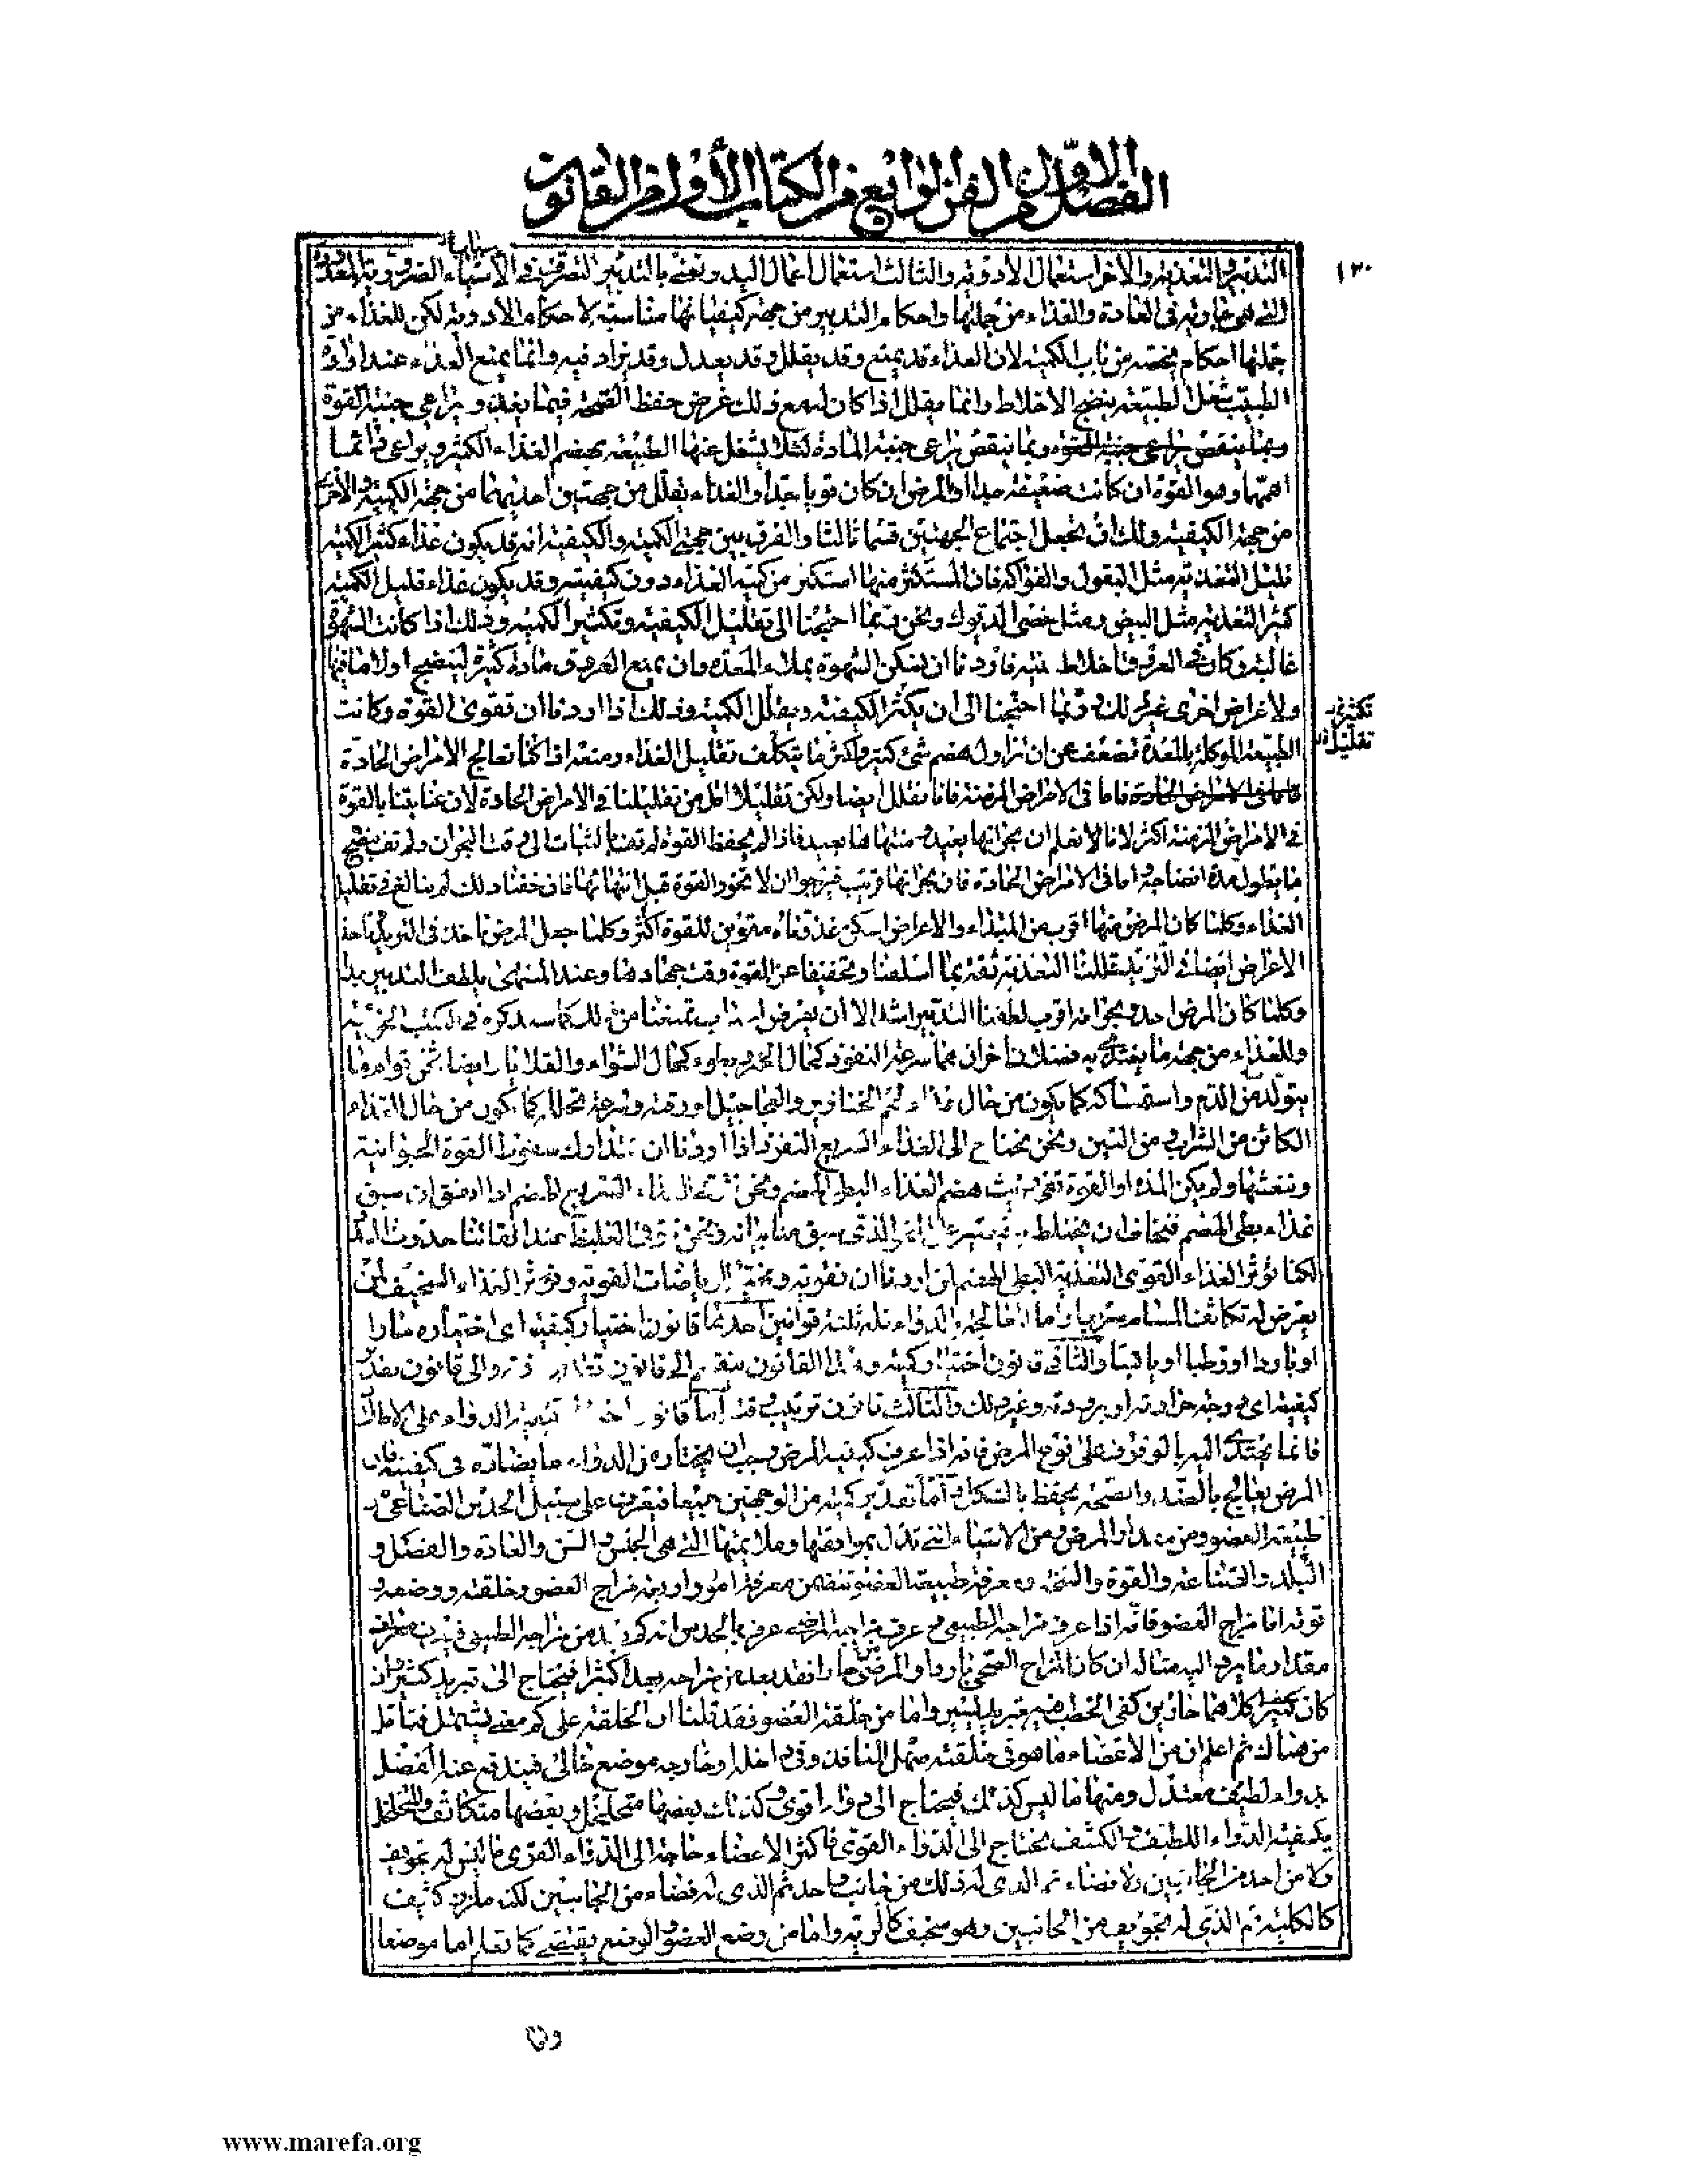 الفصل الاول من الفن الرابع من الكتاب الأول من القانون
١٣٠
التدبير والتغذية والاخر استعمال الادوية والثالث استعمال اعمال اليد ونعني بالتدبير التصرف في الأسباب الضرورية المعدودة
التي هي جارية في العادة والغذاء من جملتها واحكام التدبير من جهة كيفياتها مناسبة لاحكام الادوية لكن للغذاء من
جملتها احكام تخصه من باب الكمية لان الغذاء قد يمنع وقد يقلل وقد يعدل وقد يزاد فيه وانما يمنع الغذاء عند ارادة
الطبيب شغل الطبيعة بنضج الاخلاط وانما يقلل اذا كان له مع ذلك غرض حفظ القوة فيما يغذو يراعي جنبة القوة
وبما ينقص يراعي جنبة القوة وبما ينقص يراعي جنبة المادة لئلا يشتغل عنها الطبيعة بهضم الغذاء الكثير ويراعى دائما
اهمهما وهو القوة ان كانت ضعيفة جدا والمرض ان كان قويا جدا والغذاء يقلل من جهتين احديهما من جهة الكمية والاخرى
من جهة الكيفية ولك ان تجعل اجتماع الجهتين قسما ثالثا والفرق بين جهتي الكمية والكيفية انه قد يكون غذاء كثير الكمية
قليل التغذية مثل البقول والفواكه فان المستكثر منها استكثر من كمية الغذاء دون كيفيته وقد يكون غذاء قليل الكمية
كثير التغذية مثل البيض ومثل خصى الديوك ونحن ربما احتجنا الى تقليل الكيفية وتكثير الكمية وذلك اذا كانت الشهوة
غالبة وكان في العروق اخلاط نية فاردنا ان نسكن الشهوة بملاء المعدة وان يمنع العروق مادة كثيرة لينضج اولا ما فيها
ولاغراض اخرى غير ذلك وربما احتجنا الى ان يكثر الكيفية ويقلل الكمية وذلك اذا اردنا ان نقوى القوة وكانت
تكثير
تقليل
الطبيعة الموكلة بالمعدة تضعف عن ان تزاول هضم شئ كثير واكثر ما يتكلف تقليل الغذاء ومنعه اذا كنا نعالج الامراض الحادة
فاما في الامراض الحادة فاما في الامراض المزمنة فانا نقلل ايضا ولكن تقليلا اقل من تقليلنا في الامراض الحادة لان عنايتنا بالقوة
في الامراض المزمنة اكثر لانا نعلم ان بحرانها بعيد ومنتهاها بعيد فاذا لم يحفظ القوة لم تف بالثبات الى وقت البحران ولم تف بنضج
ما يطول مدة انضاجه واما في الامراض الحادة فان بحرانها قريب فنرجوا ان لا تخور القوة قبل انتهائها فان خفنا ذلك لم نبالغ في تقليل
الغذاء وكلما كان المرض منها اقرب من المبتداء والاعراض اسكن غذوناه مقوين للقوة اكثر وكلما جعل المرض ياخذ في التزيد وياخذ
الاعراض ايضا في التزيد قللنا التغذية ثقة بما اسلفنا وتخفيفا عن القوة وقت جهادها وعند المنتهى يلطف التدبير جدا
وكلما كان المرض احد وبحرانه اقرب لطفنا التدبير اشد الا ان يعرض اسباب تمنعنا من ذلك كما سنذكره في الكتب الجزئية
وللغذاء من جهة ما يغتذى به فصلان اخران هما سرعة النفوذ كحال الخمر وبطوء كحال الشواء والقلايا وايضا نحن قوام ما
يتولد من الدم واستمساكه كما يكون من حال غذاء لحم الخنازير والعجاجيل او رقته وسرعة تحلله كما يكون من حال الغذاء
الكائن من الشراب ومن التين ونحن نحتاج الى الغذاء السريع النفوذ اذا اردنا ان نتدارك سقوط القوة الحيوانية
وننعشها ولم يكن المدة او القوة تفى ريث هضم الغذاء البطى الهضم ونحن نتوقى الغذاء السريع الهضم اذا اتفق ان سبق
غذاء بطى الهضم فنخاف ان يختلط به فيصير على النحو الذي سبق منا بيانه ونحن نتوقى الغليظ عند ايقاننا حدوث السدد
لكنا نؤثر الغذاء القوى التغذية البطى الهضم لمن اردنا ان نقويه ونهيئه للرياضات القوية ونؤثر الغذاء السخيف لمن
يعرض له تكاثف المسام سريعا واما المعالجة بالدواء فله ثلثة قوانين احدها قانون اختيار كيفيته اى اختياره حارا
او باردا او رطبا او يابسا والثاني قانون اختيار كميته وهذا القانون ينقسم الى قانون تقدير وزنه والى قانون تقدير
كيفيته اى درجة حرارته او برودته وغير ذلك والثالث قانون ترتيب وقته اما قانون اختيار كيفية الدواء على الاطلاق
فانما يهتدى اليه بالوقوف على نوع المرض فانه اذا عرف كيفية المرض وجب ان يختار من الدواء ما يضاده في كيفيته فان
المرض يعالج بالضد والصحة يحفظ بالشكل واما تقدير كميته من الوجهين جميعا فيعرف على سبيل الحدس الصناعي من
طبيعة العضو ومن مقدار المرض ومن الاشياء التي تدل بموافقتها وملايمتها التي هي الجنس والسن والعادة والفصل و
البلد والصناعة والقوة والسحنة ومعرفة طبيعة العضو يتضمن معرفة امور اربعة مزاج العضو وخلقته ووضعه و
قوته اما مزاج العضو فانه اذا عرف مزاجه الطبيعي وعرف مزاجه المرضى عرف بالحدس انه كم بعد من مزاجه الطبيعي فيعرف
مقدار ما يرده اليه مثاله ان كان المزاج الصحي باردا والمرض حارا فقد بعد من مزاجه بعدا كثيرا فيحتاج الى تبريد كثير وان
كان كلاهما حارين كفى الخطب فيه تبريد يسير واما من خلقة العضو فقد قلنا ان الخلقة على كم معنى يشتمل فتامل
من هناك ثم اعلم ان من الاعضاء ما هو في خلقته سهل المنافذ وفي داخله او خارجه موضع خالى فيندفع عنه الفضل
بدواء لطيف معتدل ومنها ما ليس كذلك فيحتاج الى دواء اقوى وكذلك بعضها متخلخل وبعضها متكاثف والمتخلخل
يكفيه الدواء اللطيف والكثيف يحتاج الى الدواء القوى فاكثر الاعضاء حاجة الى الدواء القوى ما ليس له تجويف
ولا من احد من الجانبين ولا فضاء ثم الذى له ذلك من جانب واحد ثم الذى له فضاء من الجانبين لكنه ملزز كثيف
كالكلية ثم الذي له تجويف من الجانبين وهو سخيف كالرية واما من وضع العضو والوضع يقتضى كما تعلم اما موضعا
www.marefa.org